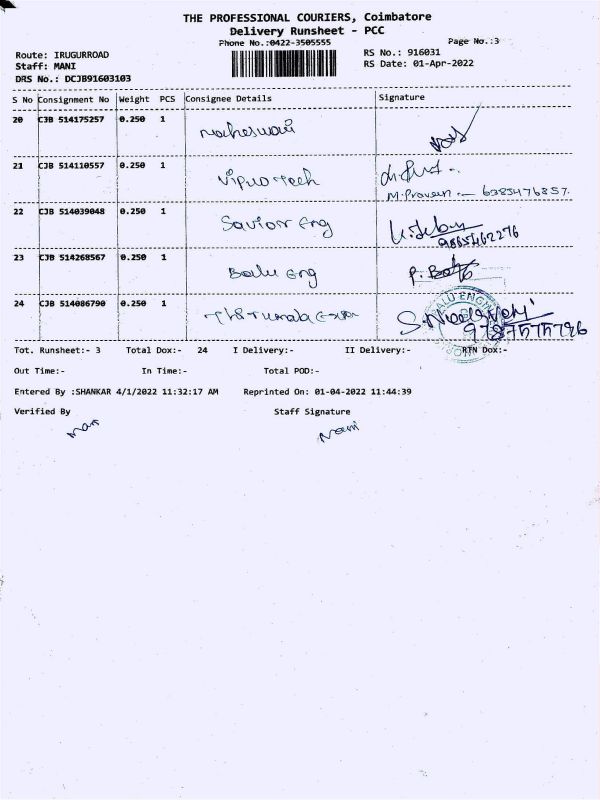 THE PROFESSIONAL COURIERS, Coimbatore
Delivery Runsheet - PCC
Phone No.:0422-3505555
Page No.:3
Route: IRUGURROAD
RS No.: 916031
Staff: MANI
RS Date: 01-Apr-2022
DRS No.: DCJB91603103
S No Consignment No Weight PCS Consignee Details Signature
20 CJB 514175257 0.250 1 Maheswari
21 CJB 514110557 0.250 1 Vipra Tech
M.Praveen - 6385476857.
22 CJB 514039048 0.250 1 Savior Eng
9865462276
23 CJB 514268567 0.250 1 Balu Eng
24 CJB 514086790 0.250 1
9787575796
Tot. Runsheet:- 3 Total Dox:- 24 I Delivery:- II Delivery:- RTN Dox:-
Out Time:- In Time:- Total POD:-
Entered By :SHANKAR 4/1/2022 11:32:17 AM Reprinted On: 01-04-2022 11:44:39
Verified By Staff Signature
Mani Mani